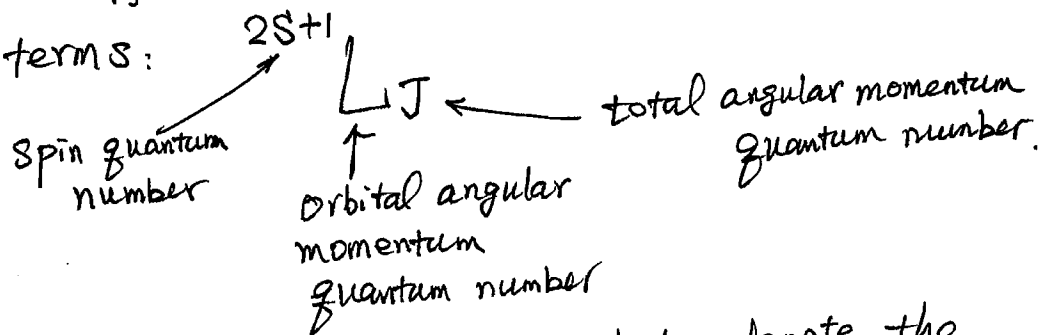 terms: 2S+1
L J
total angular momentum
quantum number.
spin quantum
number
orbital angular
momentum
quantum number
denote the